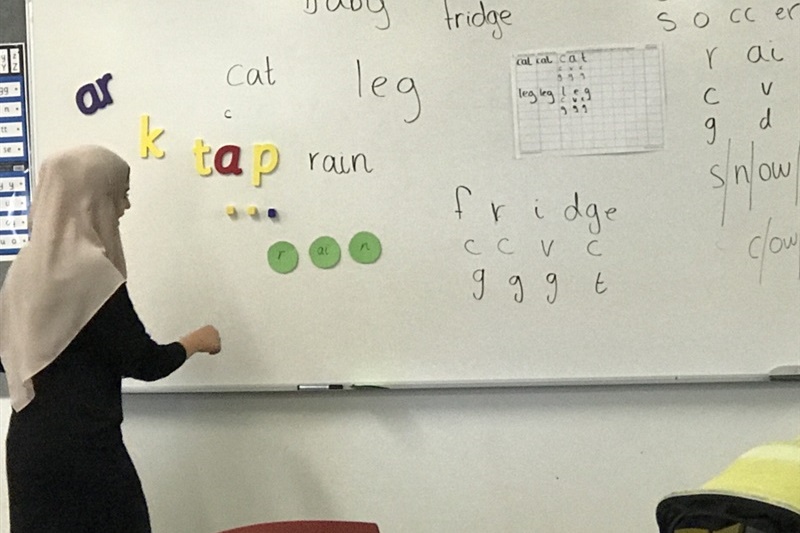 baby fridge
s o cc er
r ai
c v
g d
s/n/ow/
c/ow/
cat leg
c
ar
k
tap rain
r ai n
cat cat c a t
c v c
g g g
leg leg l e g
c v c
g g g
f r i dge
c c v c
g g g t